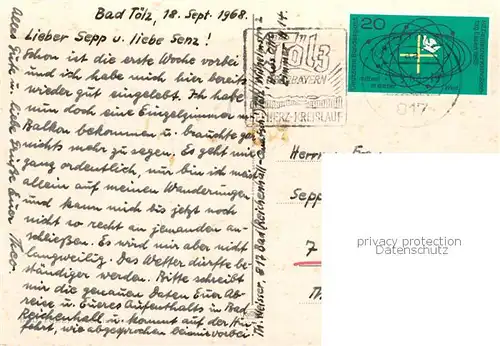 Bad Tölz, 18. Sept. 1968.
Lieber Sepp u. liebe Senz!
Schon ist die erste Woche vorbei
und ich habe mich hier bereits
wieder gut eingelebt. Ich habe
nun doch eine Einzelzimmer m.
Balkon bekommen u. brauchte gar
nichts mehr zu sagen. Es geht mir
ganz ordentlich, nur bin ich meist
allein auf meinen Wanderungen
und kann mich bis jetzt noch
nicht so recht an jemanden an-
schließen. Es wird mir aber nicht
langweilig. Das Wetter dürfte be-
ständiger werden. Bitte schreibt
mir die genauen Daten Eurer Ab-
reise u. Eueres Aufenthalts in Bad
Reichenhall u. kommt auf der Hin-
fahrt, wie abgesprochen bei mir vorbei.
Alles Gute u. liebe Grüße Euer
Th. Weisser, 817 Bad
TÖLZ
BAYERN
HERZ-KREISLAUF
20
817
Herrn
Sepp
7
Th.
privacy protection
Datenschutz